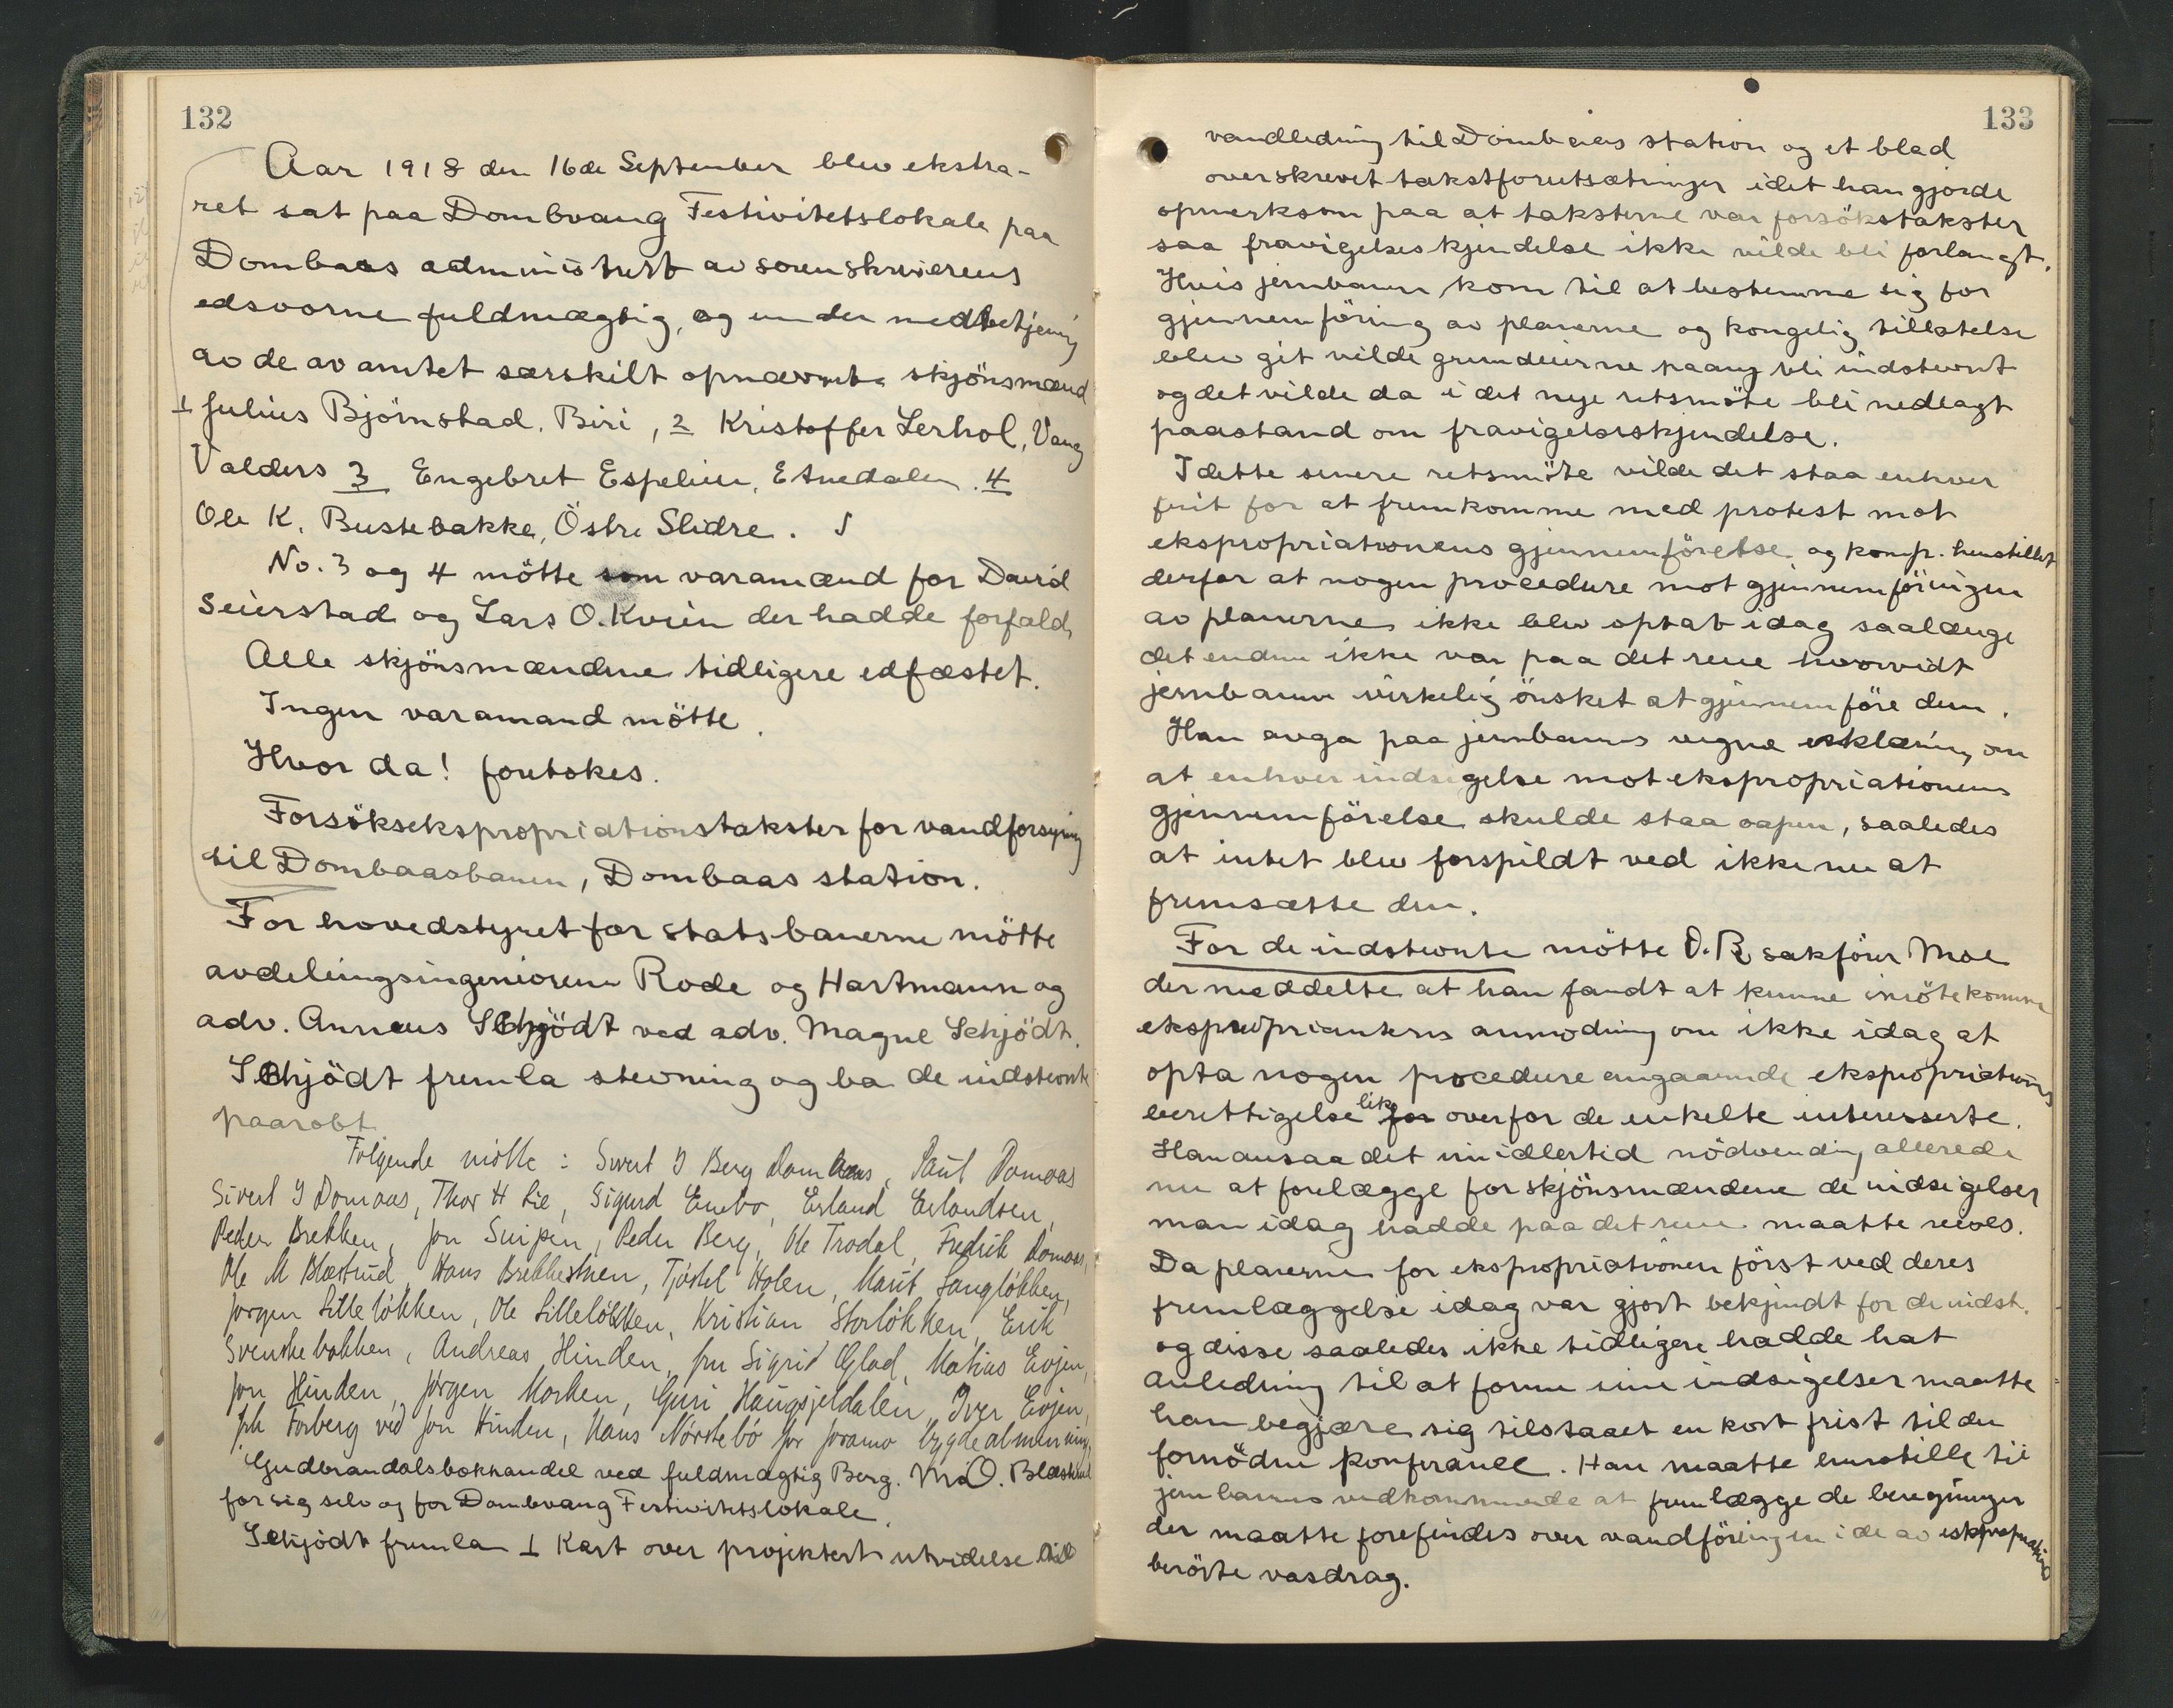 132
Aar 1918 den 16de September blev ekstra-
ret sat paa Dombvang Festivitetslokale paa
Dombaas administrert av sorenskriverens
edsvorne fuldmægtig, og under medbetjening
av de av amtet særskilt opnævnte skjönsmænd
1 Julius Björnstad, Biri, 2 Kristoffer Lerhol, Vang
Valders 3 Engebret Espelien, Etnedalen. 4
Ole K. Bustebakke, Östre Slidre.
No. 3 og 4 mötte som varamænd for David
Seierstad og Lars O. Kvien der hadde forfald.
Alle skjönsmændene tidligere edfæstet.
Ingen varamand mötte.
Hvor da! foretokes.
Forsöksekspropriationstakster for vandforsyning
til Dombaasbanen, Dombaas station.
For hovedstyret for statsbanerne mötte
avdelingsingeniörene Rode og Hartmann og
adv. Annæus Schjödt ved adv. Magne Schjödt.
Schjödt fremla stevning og ba de indstevnte
paaropt
Følgende møtte: Sivert I Berg Dombaas, Paul Domaas
Sivert I Domaas, Thor H Lie, Sigurd Enebo, Erland Erlandsen,
Peder Brekken, Jon Snipen, Peder Berg, Ole Trodal, Fredrik Domaas,
Ole M Blæstrud, Hans Brekkestuen, Tjøstel Holen, Marit Langløkken,
Jørgen Lilleløkken, Ole Lilleløkken, Kristian Storløkken, Erik
Svenskebakken, Andreas Hinden, fru Sigrid Glad, Matias Evjen,
Jon Hinden, Jørgen Morken, Guri Haugsjeldalen, Iver Evjen,
Joh Forberg ved Jon Hinden, Hans Nørstebø for Joramo bygdealmenning,
Gudbrandalsbokhandel ved fuldmægtig Berg. M.O. Blæstrud
for sig selv og for Dombvang Festivitetslokale.
Schjödt fremla 1 Kart over projektert utvidelse av
133
vandledning til Dombaas station og et blad
overskrevet takstforutsætninger idet han gjorde
opmerksom paa at taksterne var forsökstakster
saa fravigelseskjendelse ikke vilde bli forlangt.
Hvis jernbanen kom til at bestemme sig for
gjennemföring av planerne og kongelig tillatelse
blev git vilde grundeierne paany bli indstevnt
og det vilde da i det nye retsmöte bli nedlagt
paastand om fravigelseskjendelse.
I dette senere retsmöte vilde det staa enhver
frit for at fremkomme med protest mot
ekspropriationens gjennemförelse og komp. henstillet
derfor at nogen procedure mot gjennemföringen
av planerne ikke blev optat idag saalænge
det endnu ikke var paa det rene hvorvidt
jernbanen virkelig önsket at gjennemföre dem.
Han avga paa jernbanens vegne erklæring om
at enhver indsigelse mot ekspropriationens
gjennemförelse skulde staa aapen, saaledes
at intet blev forspildt ved ikke nu at
fremsætte den.
For de indstevnte mötte O.R. sakförer Moe
der meddelte at han fandt at kunne imötekomme
ekspropriantens anmodning om ikke idag at
opta nogen procedure angaaende ekspropriations
berettigelse like overfor de enkelte interesserte.
Han ansaa det imidlertid nödvendig allerede
nu at forelægge for skjönsmændene de indsigelser
man idag hadde paa det rene maatte reises.
Da planerne for ekspropriationen först ved deres
fremlæggelse idag var gjort bekjendt for de indst.
og disse saaledes ikke tidligere hadde hat
anledning til at forme sine indsigelser maatte
han begjære sig tilstaaet en kort frist til den
fornödne konferanse. Han maatte henstille til
jernbanens vedkommende at fremlægge de beregninger
der maatte forefindes over vandföringen i de av ekspropriationen
berörte vasdrag.